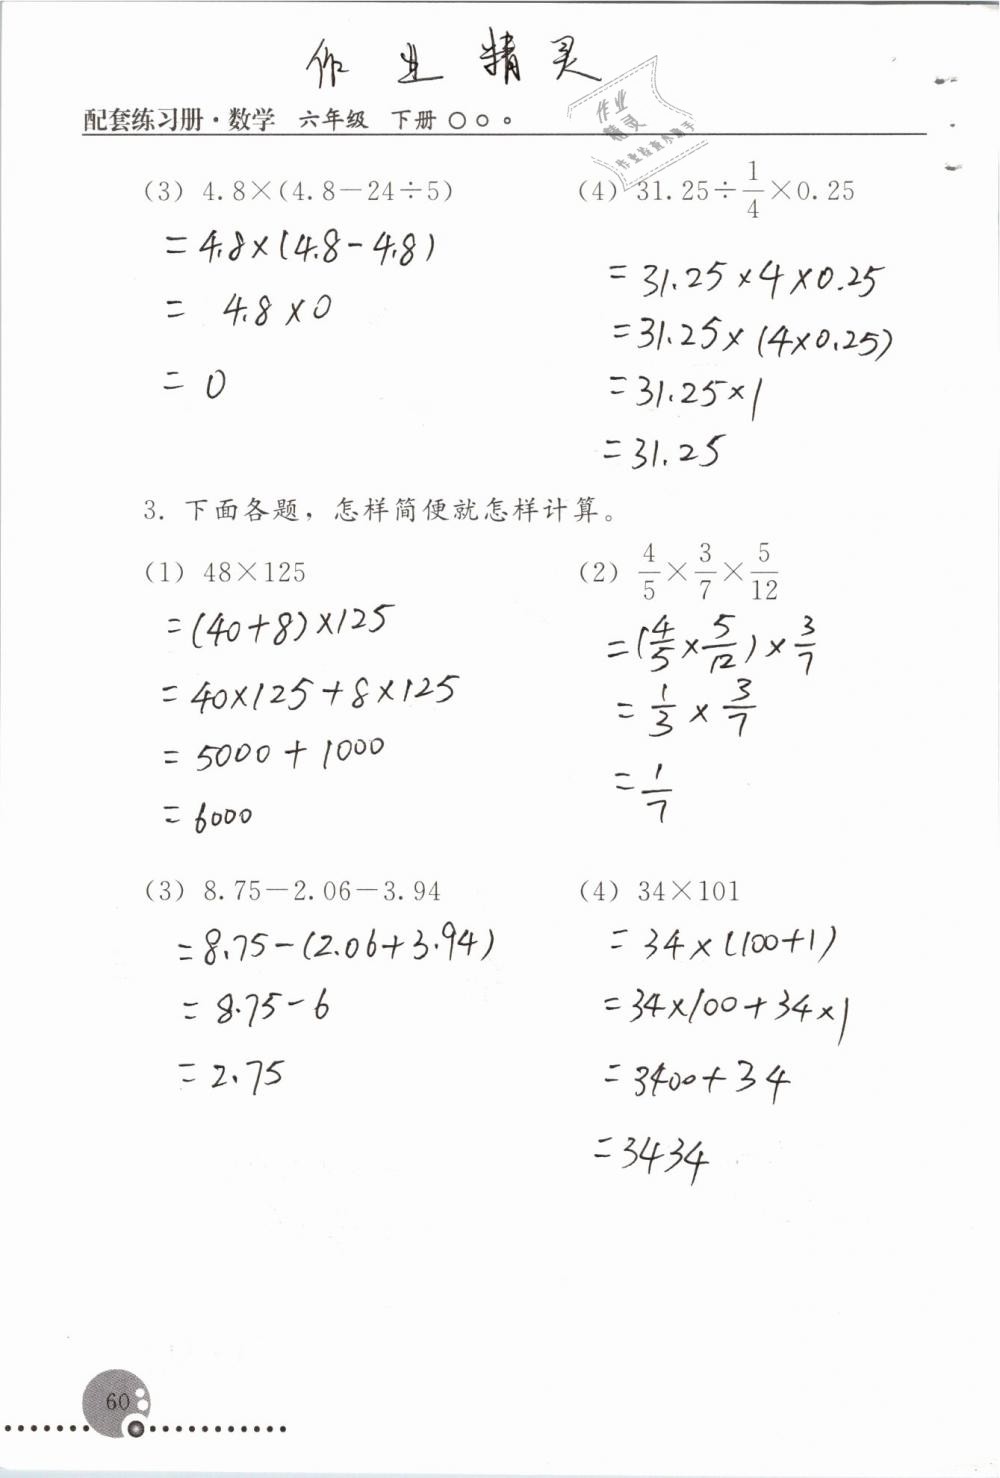 作业精灵
配套练习册·数学 六年级 下册
作业
精灵
作业检查小助手
(3) 4.8×(4.8－24÷5)
=4.8×(4.8-4.8)
= 4.8×0
= 0
(4) 31.25÷1/4×0.25
=31.25×4×0.25
=31.25×(4×0.25)
=31.25×1
=31.25
3. 下面各题，怎样简便就怎样计算。
(1) 48×125
=(40+8)×125
=40×125+8×125
=5000+1000
=6000
(2) 4/5×3/7×5/12
=(4/5×5/12)×3/7
=1/3×3/7
=1/7
(3) 8.75－2.06－3.94
=8.75-(2.06+3.94)
=8.75-6
=2.75
(4) 34×101
=34×(100+1)
=34×100+34×1
=3400+34
=3434
60